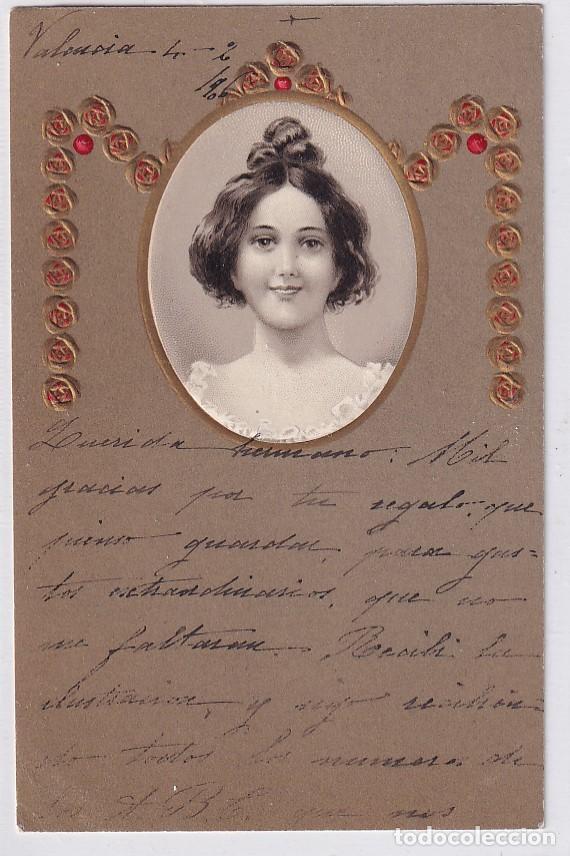 Valencia 4 - 2
Querida hermano: Mil
gracias por tu regalo, que
pienso guardar, para gas=
tos extraordinarios, que no
me faltaran. Recibi la
ilustracion, y sigo recibien=
do todos los numeros de
A B C. que nos
todocoleccion